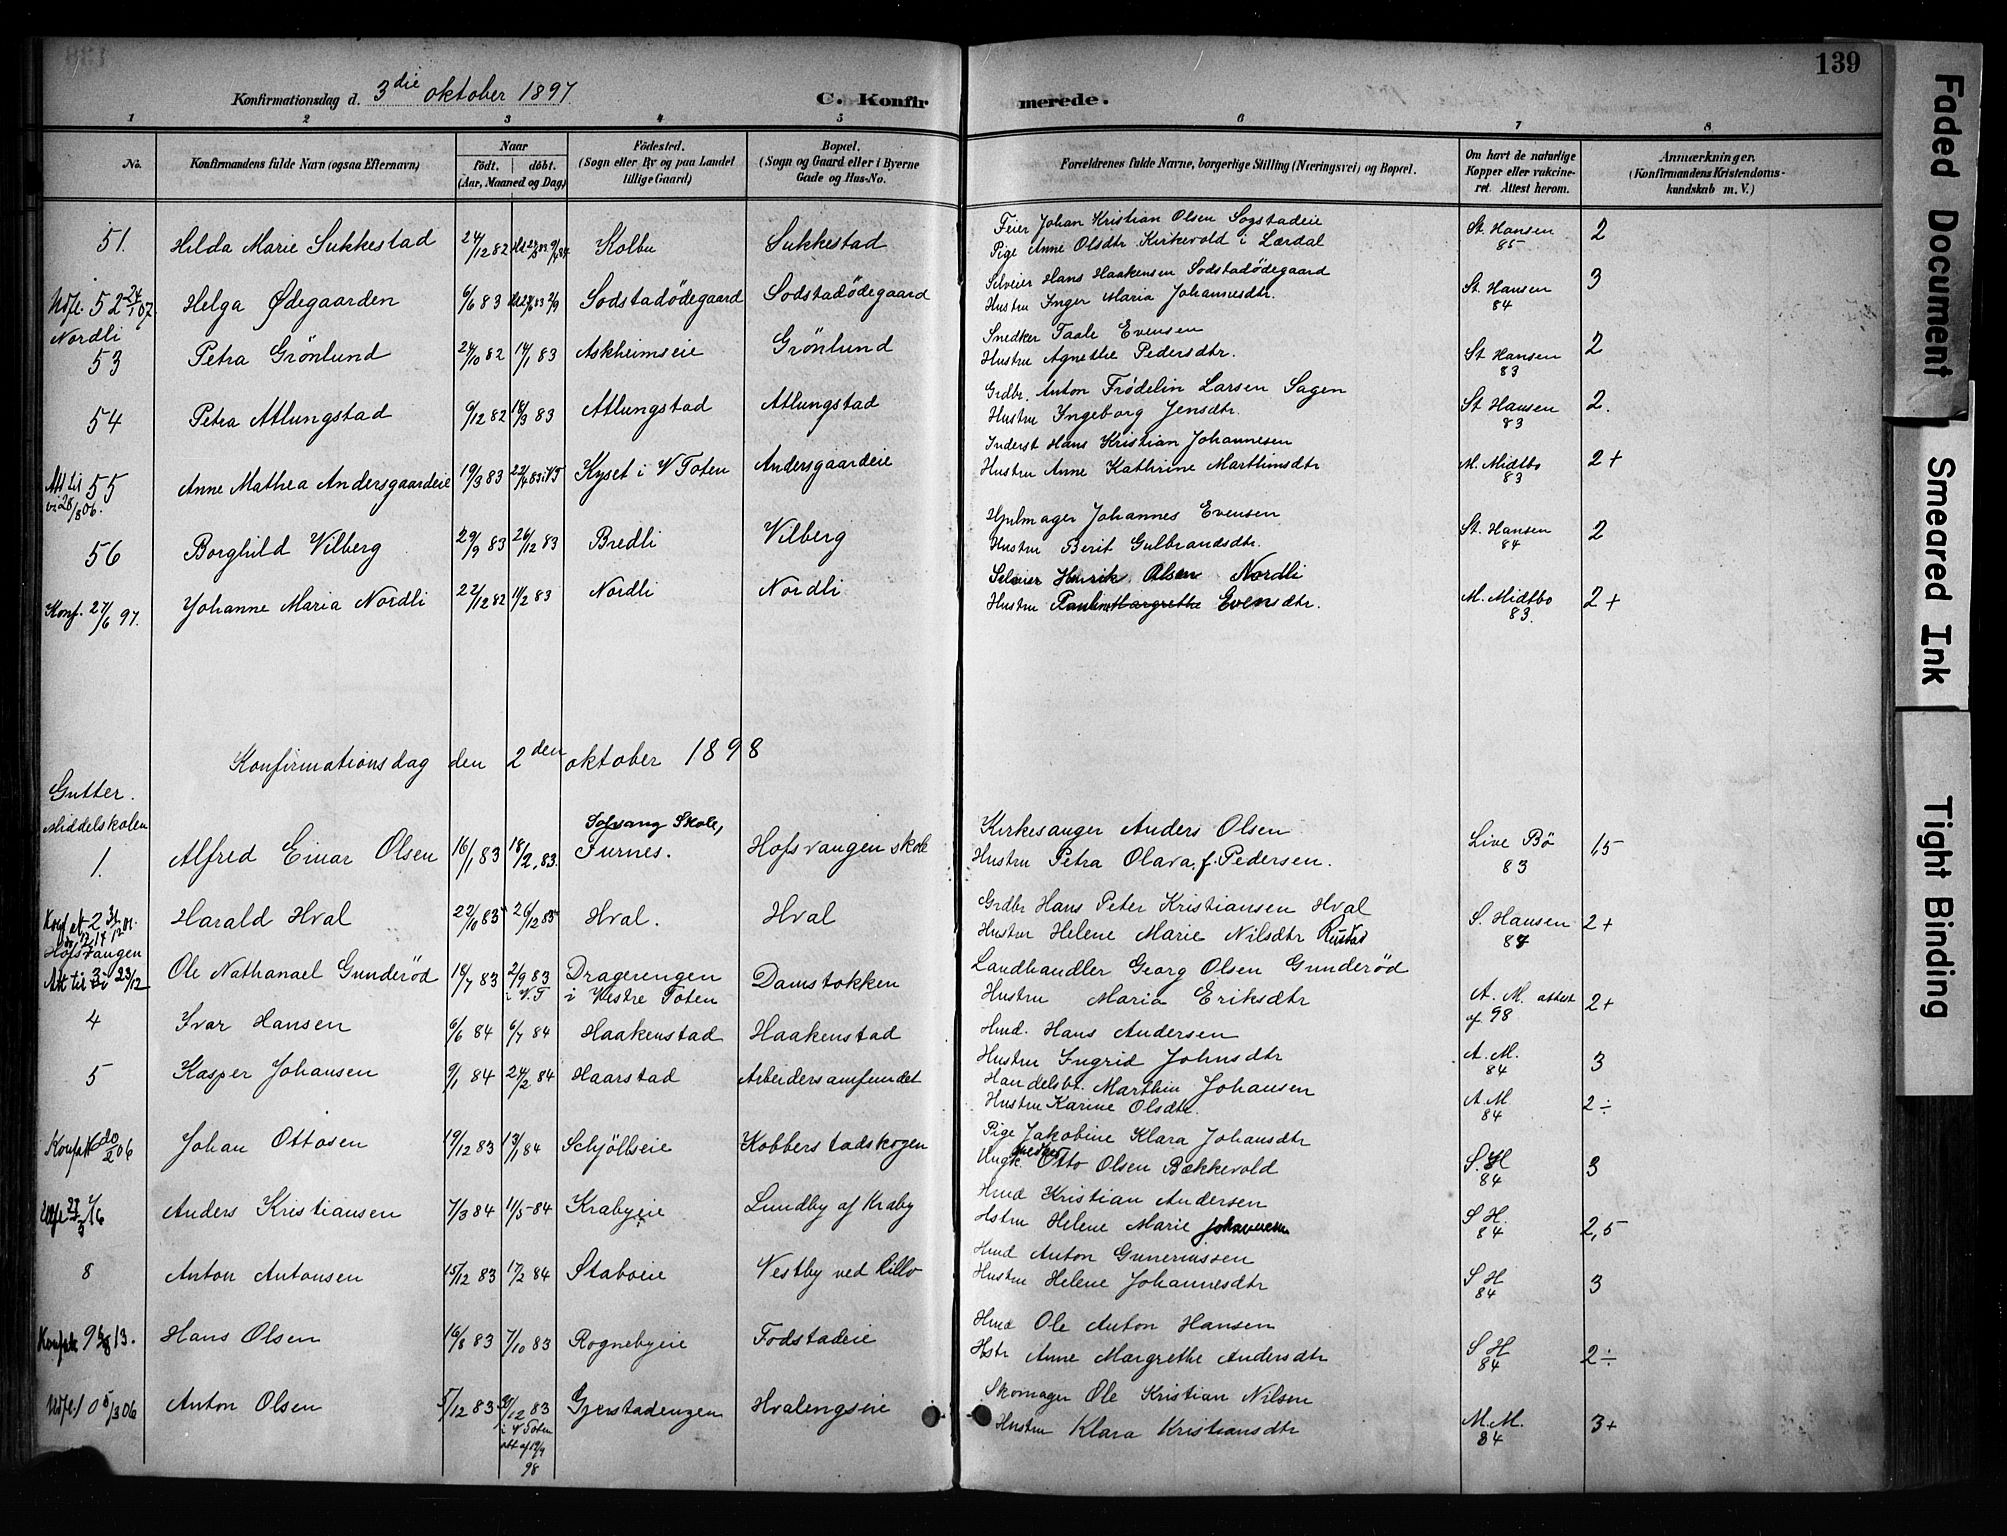 139
Konfirmationsdag d. 3die oktober 1897
C. Konfirmerede.
1 2 3 4 5 6 7 8
No.
Konfirmandens fulde Navn (ogsaa Efternavn)
Naar
födt. döbt.
(Aar, Maaned og Dag)
Födested.
(Sogn eller By og paa Landet tillige Gaard)
Bopæl.
(Sogn og Gaard eller i Byerne Gade og Hus-No.
Forældrenes fulde Navne, borgerlige Stilling (Næringsvei) og Bopæl.
Om havt de naturlige Kopper eller vaccineret. Attest herom.
Anmærkninger.
(Konfirmandens Kristendomskundskab m. V.)
51. Hilda Marie Sukkestad 24/12 82 Kolbu Sukkestad
Feier Johan Kristian Olsen Sogstadeie
Pige Anne Olsdtr. Kirkevold i Lærdal
St. Hansen 85 2
52 Helga Ødegaarden 6/6 83 Sodstadödegaard Sodstadödegaard
Selveier Hans Haakensen Sodstadödegaard
Hustru Inger Maria Johannesdtr.
St. Hansen 84 3
Nordli
53 Petra Grönlund 24/10 82 14/1 83 Askheimseie Grönlund
Snedker Taale Evensen
Hustru Agnethe Pedersdtr.
St Hansen 83 2
54 Petra Atlungstad 9/12 82 18/3 83 Atlungstad Atlungstad
Grdbr. Anton Frødelin Larsen Sagen
Hustru Ingeborg Jensdtr.
St Hansen 83 2.
55 Anne Mathea Andersgaardeie 19/3 83 Kyset i V Toten Andersgaardeie
Inderst Hans Kristian Johannesen
Hustru Anne Kathrine Marthinsdtr
M. Midtbo 83 2+
56 Borghild Vilberg 29/9 83 26/12 83 Bredli Vilberg
Hjulmager Johannes Evensen
Hustru Berit Gulbrandsdtr.
St. Hansen 84 2
Konf. 27/6 97. Johanne Maria Nordli 22/12 82 11/2 83 Nordli Nordli
Selveier Henrik Olsen Nordli
Hustru Pauline Margrethe Evensdtr.
M. Midtbo 83. 2+
Konfirmationsdag den 2den oktober 1898
Gutter.
Middelskolen
1. Alfred Einar Olsen 16/1 83 18/2 83. Solvang Skole, Furnes. Hofsvangen skole
Kirkesanger Anders Olsen
Hustru Petra Olava, f. Pedersen.
Live Bø 83 1,5
2 Harald Hval 22/10 83 26/12 83 Hval. Hval
Grdbr Hans Peter Kristiansen Hval
Hustru Helene Marie Nilsdtr Rustad
S. Hansen 84 2+
Hofsvangen
3 Ole Nathanael Gunderød 18/7 83 2/9 83 i V.T Dragerengen i Vestre Toten Damstokken
Landhandler Georg Olsen Gunderød
Hustru Maria Eriksdtr
A. M. attest af 98 2+
4 Ivar Hansen 6/6 84 6/7 84 Haakenstad Haakenstad
Hmd. Hans Andersen
Hustru Ingrid Johnsdtr
A. M. 84 3
5 Kasper Johansen 9/1 84 24/2 84 Haarstad Arbeidersamfundet
Handelsbt. Marthin Johansen
Hustru Karine Olsdtr.
A. M 84 2÷
Johan Ottosen 19/12 83 13/1 84 Schjöllseie Kobberstadskogen
Pige Jakobine Klara Johansdtr
Ungk. Otto Olsen Bækkevold
S. H 84 3
Anders Kristiansen 7/3 84 11/5 84 Krabyeie Lundby af Kraby
Hmd Kristian Andersen
Hstru Helene Marie Johannesen
S H. 84 2,5
8 Anton Antonsen 15/12 83 17/2 84 Staboeie Vestby ved Lillo
Hmd Anton Gunerinssen
Hustru Helene Johannesdtr
S H 84 3
9 Hans Olsen 16/8 83 7/10 83 Rognebyeie Fodstadeie
Hmd Ole Anton Hansen
Hstr Anne Margrethe Andersdtr
S H 84 2÷
10 Anton Olsen 5/12 83 Gjerstadengen Hvalengseie
Skomager Ole Kristian Nilsen
Hustru Klara Kristiansdtr
M. M. 84 3+
Faded Document
Smeared Ink
Tight Binding